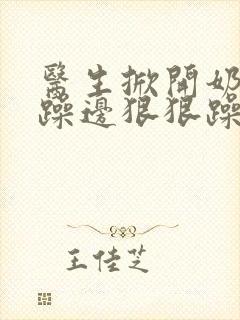 醫生掀開奶
躁邊狠狠躁
王佳芝